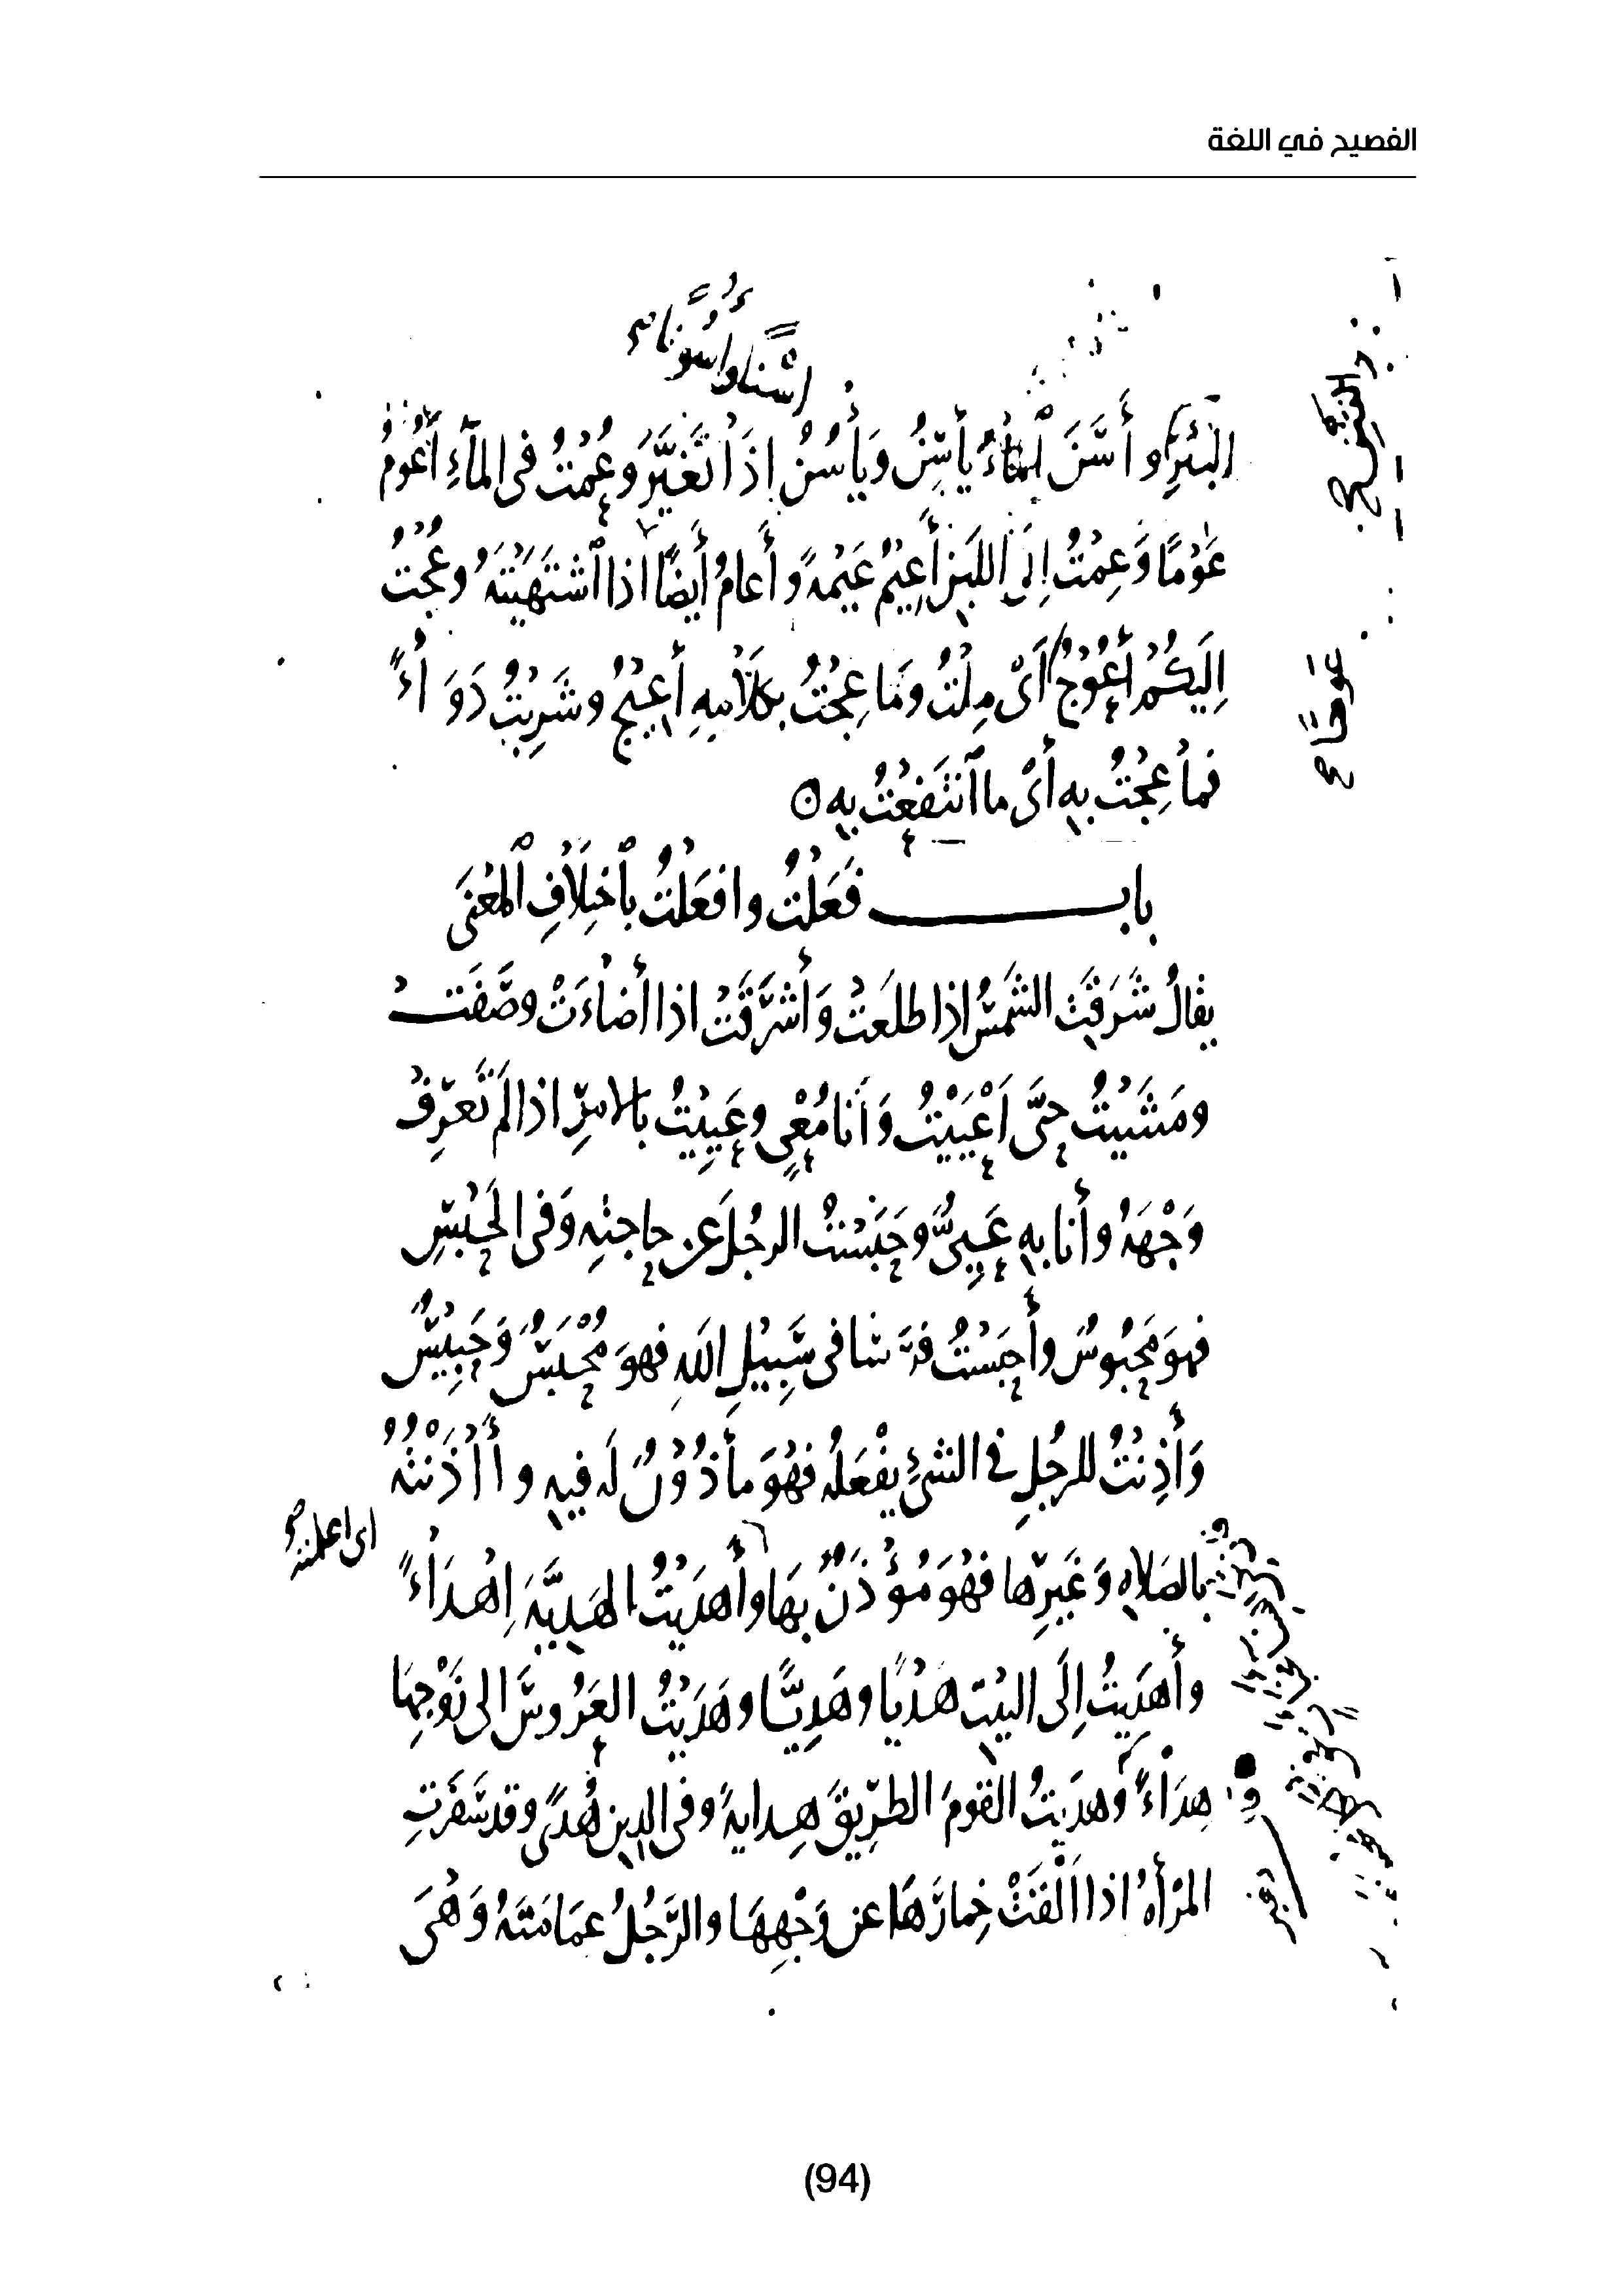 الفصيح في اللغة
أَسْنًا وأُسُونًا
البِئْرِ وأَسَنَ المَاءُ يَأْسِنُ وَيَأْسُنُ إِذَا تَغَيَّرَ وعُمْتُ في الماءِ أَعُومُ
عَوْمًا وَعِمْتُ إِلى اللَبَنِ أَعِيْمُ عَيْمَةً وأَعامُ أَيضًا اذا اشْتَهَيْتَهُ وعُجْتُ
اِلَيكُمْ أَعُوْجُ أَىْ مِلْتُ وَمَا عِجْتُ بِكَلَامِهِ أَعِيْجُ وشَرِبْتُ دَوَاءً
فما عِجْتُ بِهِ أَىْ ما انْتَفَعْتُ بِهِ ٥
باب فَعَلْتُ وافعَلْتُ بِاخْتِلَافِ المَعْنَى
يقالُ شَرَقَتِ الشَمْسُ اذا طلَعَتْ وَأَشْرَقَتْ اذا أَضاءَتْ وصَفَتْ
ومَشَيْتُ حتَّى اَعْيَيْتُ وَأَنا مُعْيٍ وعَيِيْتُ بالامرِ اذا لم تَعرِفْ
وَجْهَهُ وأَنا بِهِ عَيِىٌّ وحَبَسْتُ الرجُلَ عن حاجتِهِ وَفى الحَبْسِ
فهوَ مَحبُوسٌ وأَحبَسْتُ فرَسًا فى سَبِيْلِ اللهِ فهوَ مُحْبَسٌ وَحَبِيْسٌ
وَأَذِنْتُ للرجُلِ في الشىءِ يفْعَلُهُ فهُوَ مأْذُوْنٌ لَه فيهِ وأَاذَنْتُهُ
اى اعلمته
بالصَلاةِ وَغَيرِها فهُوَ مُؤْذَنٌ بهَا وأَهدَيْتُ الهَدِيَّةَ اِهْدَاءً
وأَهدَيتُ اِلَى البيْتِ هَدْيًا وهَدِيًّا وهَدَيْتُ العَرُوسَ الى زَوْجِها
هِدَاءً وهدَيتُ القومَ الطرِيقَ هِدايةً وفى الدينِ هُدًى وقد سَفَرَتِ
المرْأَةُ اذا اَلْقَتْ خِمارَهَا عن وَجْهِهَا والرَّجُلُ عمَامَتَهُ وَهْىَ
(94)